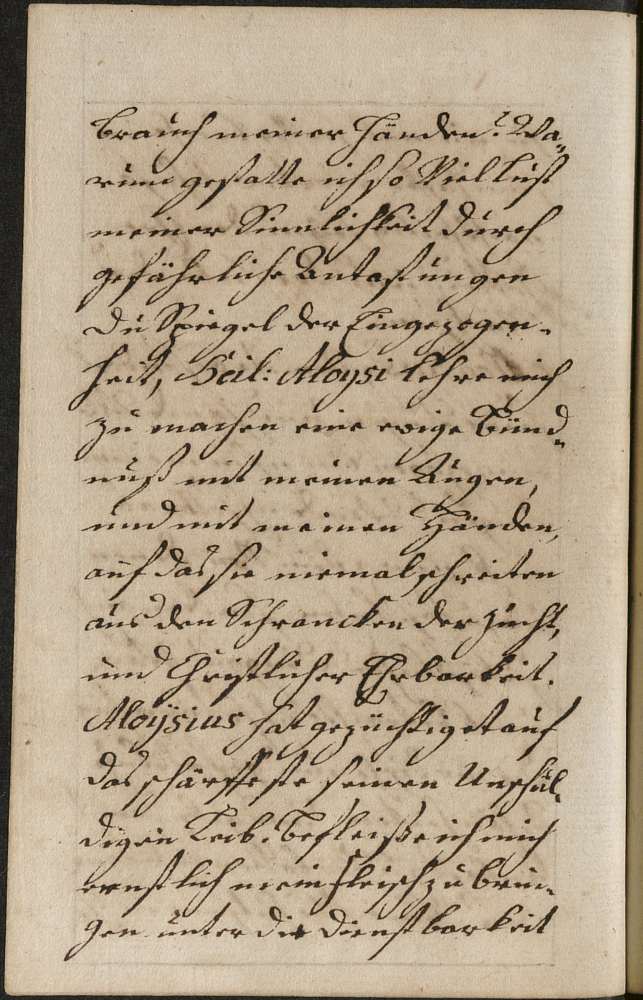 brauch meiner Händen? Wa-
rum gestatte ich so Viel lust
meiner Sinnlichkeit durch
gefährliche Antastungen
Du Spiegel der Eingezogen-
heit, Heil: Aloysi lehre mich
zu machen eine ewige Bünd-
nuß mit meinen Augen,
und mit meinen Händen,
auf das sie niemal schreiten
aus den Schrancken der Zucht,
und Christlicher Ehrbarkeit.
Aloÿsius hat gezüchtiget auf
das schärffeste seinen Unschul-
digen Leib. Befleiße ich mich
ernstlich mein Fleisch zu brin-
gen unter die Dienstbarkeit